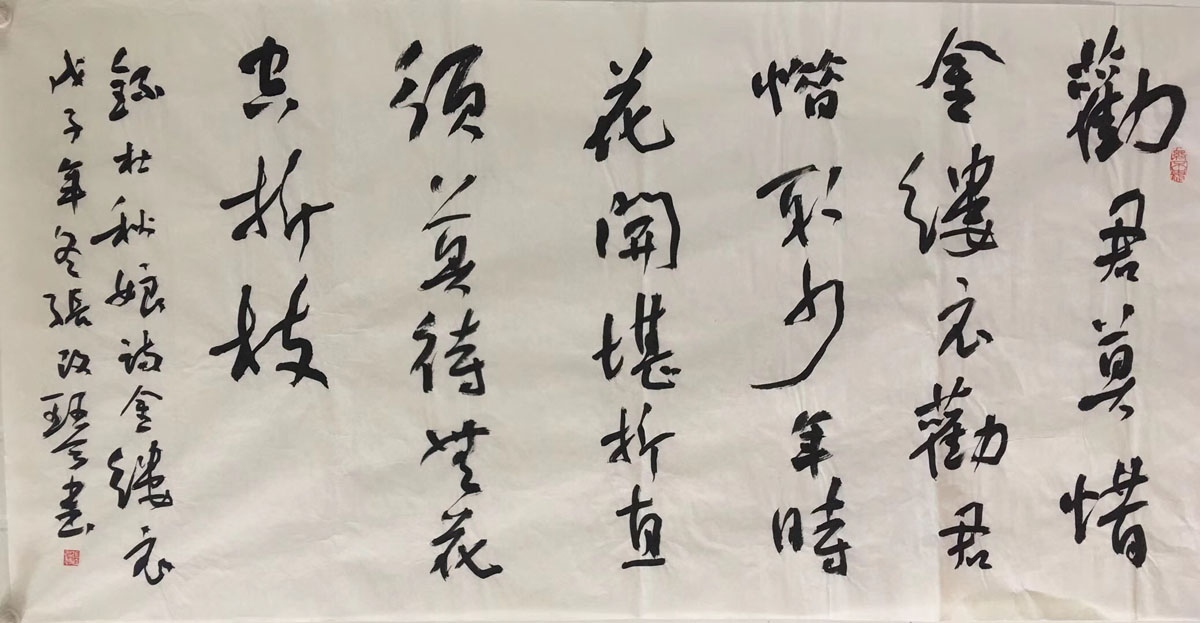 勸君莫惜
金縷衣勸君
惜取少年時
花開堪折直
須莫待無花
空折枝
錄杜秋娘詩金縷衣
戊子年冬張改琴書